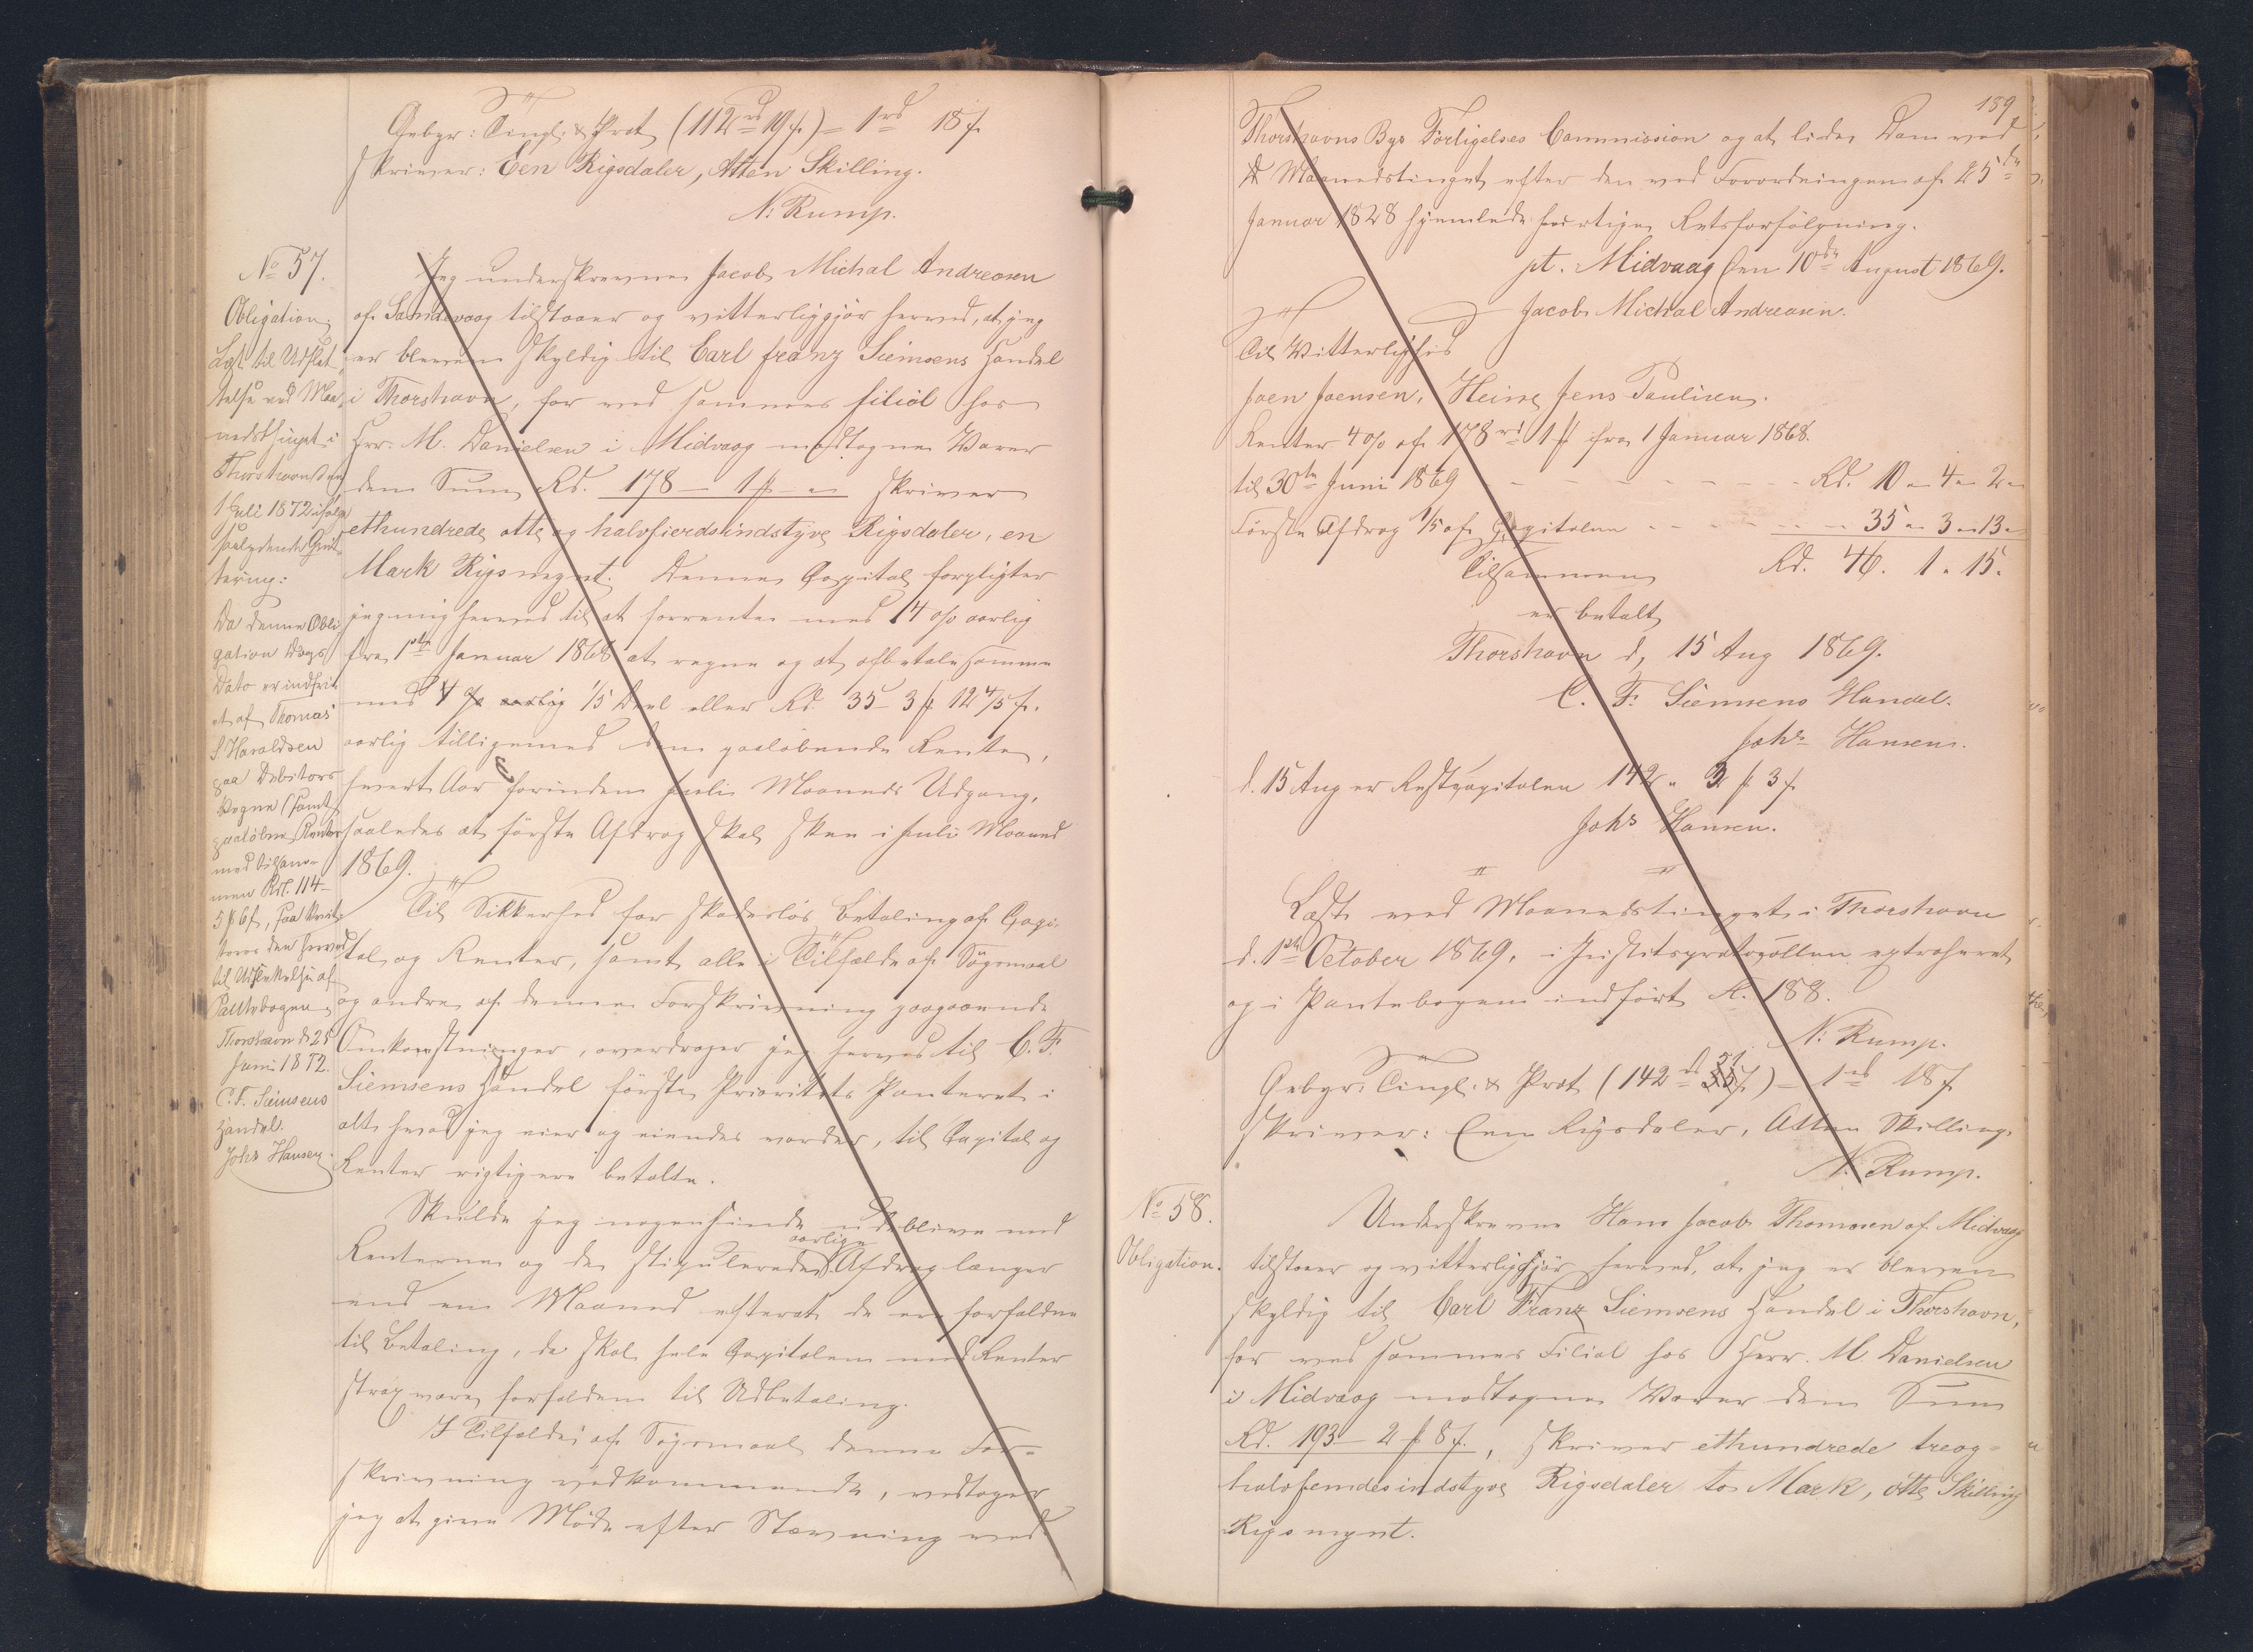 Gebyr: Tingl: & Prot (112 rd 19 s) = 1 rd 18 s
skriver: Een Rigsdaler, Atten Skilling.
N: Rump.
No 57.
Obligation.
Læst til Udslet-
telse ved Maa-
nedsthinget i
Thorshavn den
1 Juli 1872 ifølge
saalydende Qvit-
tering:
Da denne Obli
gation Dags
Dato er indfri-
et af Thomas
S. Haraldsen
paa Debitors
Vegne samt
paaløbne Renter
med tilsam-
men Rd. 114-
5 # 6 s, saa kvit-
teres den herved
til Udslettelse af
Pantebogen
Thorshavn d 25
Juni 1872.
C. F. Siemsens
Handel.
Johs Hansen
Jeg underskrevne Jacob Michal Andreasen
af Sandevaag tilstaaer og vitterliggjör herved, at jeg
er bleven skyldig til Carl franz Siemsens Handel
i Thorshavn, for ved sammes filial hos
Hrr. M. Danielsen i Midvaag modtagne Varer
den Sum Rd. 178 – 1 # – " skriver
ethundrede otte og halvfierdsindstyve Rigsdaler, en
Mark Rigsmynt. Denne Capital forpligter
jeg mig herved til at forrente med 4 o/o aarlig
fra 1ste Januar 1868 at regne og at afbetale samme
med 1/5 Deel eller Rd. 35 – 3 # 12 4/5 s.
aarlig tilligemed den paaløbende Rente,
hvert Aar forinden Juli Maaneds Udgang,
saaledes at förste Afdrag skal skee i Juli Maaned
1869.
Til Sikkerhed for skadeslös Betaling af Capi-
tal og Renter, samt alle i Tilfælde af Søgsmaal
og andre af denne Forskrivning paagaaende
Omkostninger, overdrager jeg herved til C. F.
Siemsens Handel förste Prioritets Panteret i
alt hvad jeg eier og eiendes vorder, til Capital og
Renter rigtig ere betalte.
Skulde jeg nogensinde udeblive med
Renterne og de stipulerede aarlige Afdrag længer
end en Maaned efterat de ere forfaldne
til Betaling, da skal hele Capitalen med Renter
strax være forfalden til Udbetaling.
I Tilfælde af Søgsmaal denne For-
skrivning vedkommende, vedtager
jeg at give Møde efter Stævning ved
189
Thorshavns Bys Forligelses Commission og at lide Dom ved
Maanedstinget efter den ved Forordningen af 25de
Januar 1828 hjemlede hurtige Retsforfölgning.
pt. Midvaag den 10de August 1869.
Jacob Michal Andreasen.
Til Vitterlighed
Joen Joensen, Heine Jens Paulisen.
Renter 4 o/o af 178 rd 1 # fra 1 Januar 1868.
til 30te Juni 1869 - - - - - - - Rd. 10 " 4 " 2 "
Förste Afdrag 1/5 af Capitalen - - - - - - 35 " 3 " 13 "
Tilsammen Rd. 46. 1 " 15.
er betalt
Thorshavn d, 15 Aug 1869.
C. F. Siemsens Handel.
Johs Hansen.
d. 15 Aug er Restcapitalen 142 " 3 # 3 s
Johs Hansen.
Læst ved Maanedstinget i Thorshavn
d. 1ste October 1869, i Justitsprotocollen extraheret
og i Pantebogen indfört fl. 188.
N: Rump.
Gebyr: Tingl: & Prot (142 rd 51 s) = 1 rd 18 s
skriver: Een Rigsdaler, Atten Skilling.
N: Rump.
No 58.
Obligation.
Underskrevne Hans Jacob Thomasen af Midvaag
tilstaaer og vitterliggjör herved, at jeg er bleven
skyldig til Carl Franz Siemsens Handel i Thorshavn,
for ved sammes Filial hos Herr. M Danielsen
i Midvaag modtagne Varer den Sum
Rd. 193 – 2 # 8 s., skriver ethundrede treog-
halvfemdesindstyve Rigsdaler to Mark, otte Skilling
Rigsmynt.